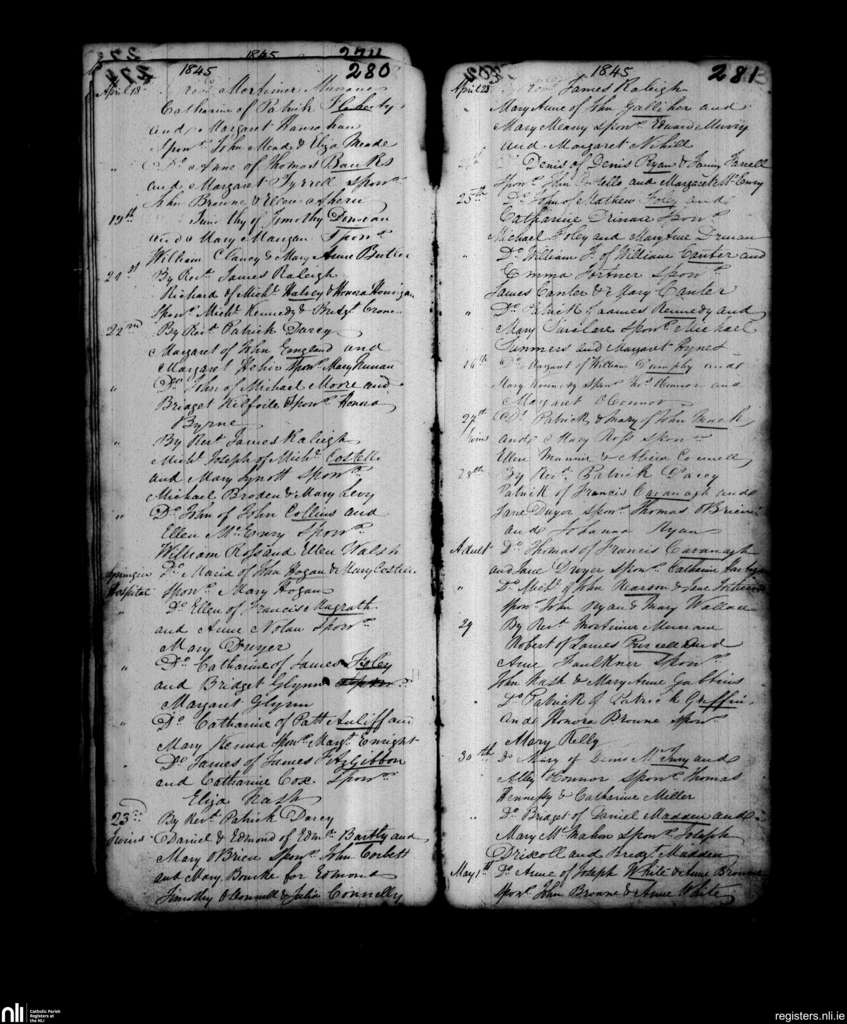 1845
280
April 18
Revd Mortimer
Catharine of Patrick Flaherty
and Margaret Hanrahan
Sponrs John Meade & Eliza Meade
" Do Anne of Thomas Banks
and Margaret Tyrrell Sponrs
John Browne & Ellen Ahern
19th Timothy of Timothy
and Mary Mangan Sponrs
William Clancy & Mary Anne Butler
By Revd James Raleigh
Richard of Michl & Honora
Sponrs Michl Kennedy & Bridgt Crone
22nd By Revd Patrick Darcy
Margaret of John England and
Margaret Sponr Mary
" Do John of Michael Moore and
Bridget Kilfoile Sponr Honora
Byrne
" By Revd James Raleigh
Michl Joseph of Michl Costello
and Mary Synott Sponrs
Michael Broden & Mary Levy
" Do John of John Collins and
Ellen McEnry Sponrs
William Ross and Ellen Walsh
Do Maria of John Hogan & Mary
Hospital Sponr Mary Hogan
" Do Ellen of Francis Magrath
and Anne Nolan Sponr
Mary Dwyer
" Do Catharine of James Foley
and Bridget Glynn
Margaret Glynn
" Do Catharine of Patt Auliff and
Mary Kenna Sponr Margt Enright
" Do James of James FitzGibbon
and Catharine Cox Sponr
Eliza Nash
23rd By Revd Patrick Darcy
Twins Daniel & Edmond of Edmd Bartly and
Mary OBrien Sponrs John Corbett
and Mary Bourke for Edmond
Timothy OConnell & Julia Connelly
1845
281
April 23
Revd James Raleigh
" Mary Anne of John Galliher and
Mary Meany Sponrs Edward
and Margaret Nihill
Do Denis of Denis Ryan & Fanny Farrell
Sponrs John Costello and Margaret McEnry
25th Do John of Mathew Foley and
Catharine Sponrs
Michael Foley and Mary Anne
" Do William F. of William Canter and
Emma Sponrs
James Canter & Mary Canter
" Do Patrick of James Kennedy and
Mary Sinclare Sponrs Michael
Summers and Margaret Hynes
Do Margaret of William Dunphy and
Mary Kennedy Sponrs Connor and
Margaret OConnor
27th Do Patrick & Mary of John
Twins and Mary Ross Sponrs
Ellen & Alicia Connell
28th By Revd Patrick Darcy
Patrick of Francis Cavanagh and
Jane Dwyer Sponrs Thomas OBrien
and Johanna Ryan
Adult Do Thomas of Francis Cavanagh
and Jane Dwyer Sponr Catharine
" Do Michl of John Pearson & Jane
Sponrs John Ryan & Mary Wallace
29 By Revd Mortimer
Robert of James Russell and
Anne Faulkner Sponrs
John Nash & Mary Anne Gubbins
" Do Patrick of Patrick Griffin
and Honora Browne Sponr
Mary Kelly
30th Do Mary of Denis and
Alley Connor Sponrs Thomas
Hennessy & Catharine Miller
" Do Bridget of Daniel Madden and
Mary McMahon Sponrs Joseph
Driscoll and Bridgt Madden
May 1st Do Anne of Joseph White & Anne Browne
Sponrs John Browne & Anne White
nli
Catholic Parish
Registers at
the NLI
registers.nli.ie